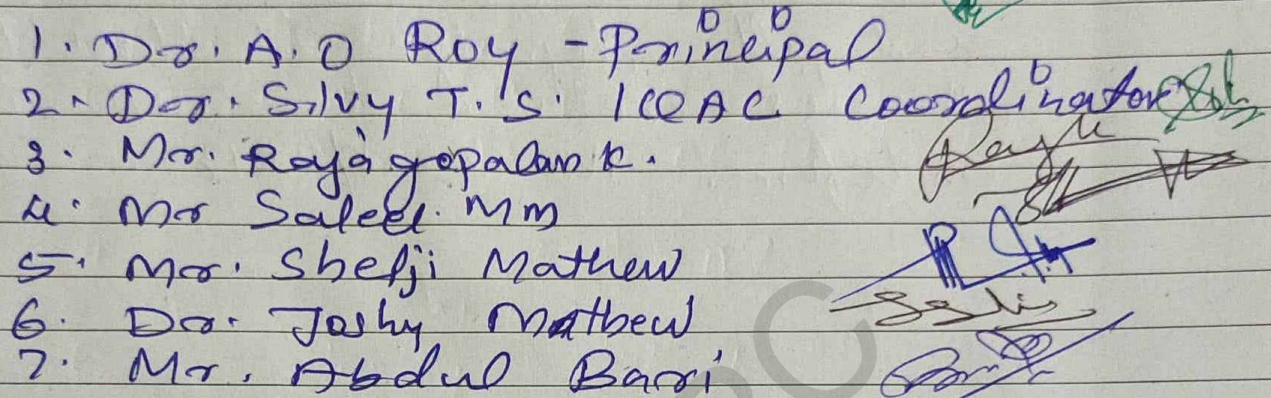 1. Dr. A.O Roy - Principal
2. Dr. Silvy T.S. IQAC Coordinator
3. Mr. Rajagopalan K.
4. Mr Saleel. MM
5. Mr. Shefji Mathew
6. Dr. Joshy Mathew
7. Mr. Abdul Bari